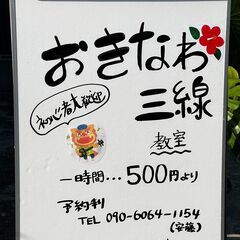 おきなわ
三線
初心者大歓迎
教室
一時間…500円より
予約制
TEL 090-6064-1154
(安藤)